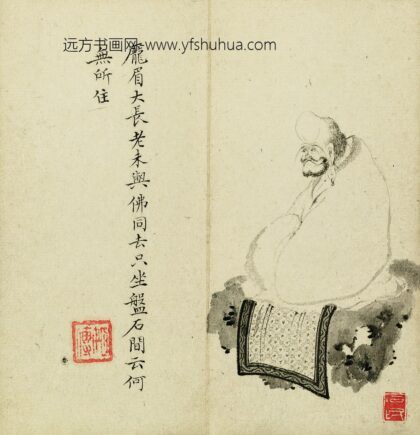 远方书画网-www.yfshuhua.com
龐眉大長老未與佛同去只坐盤石間云何
無所住